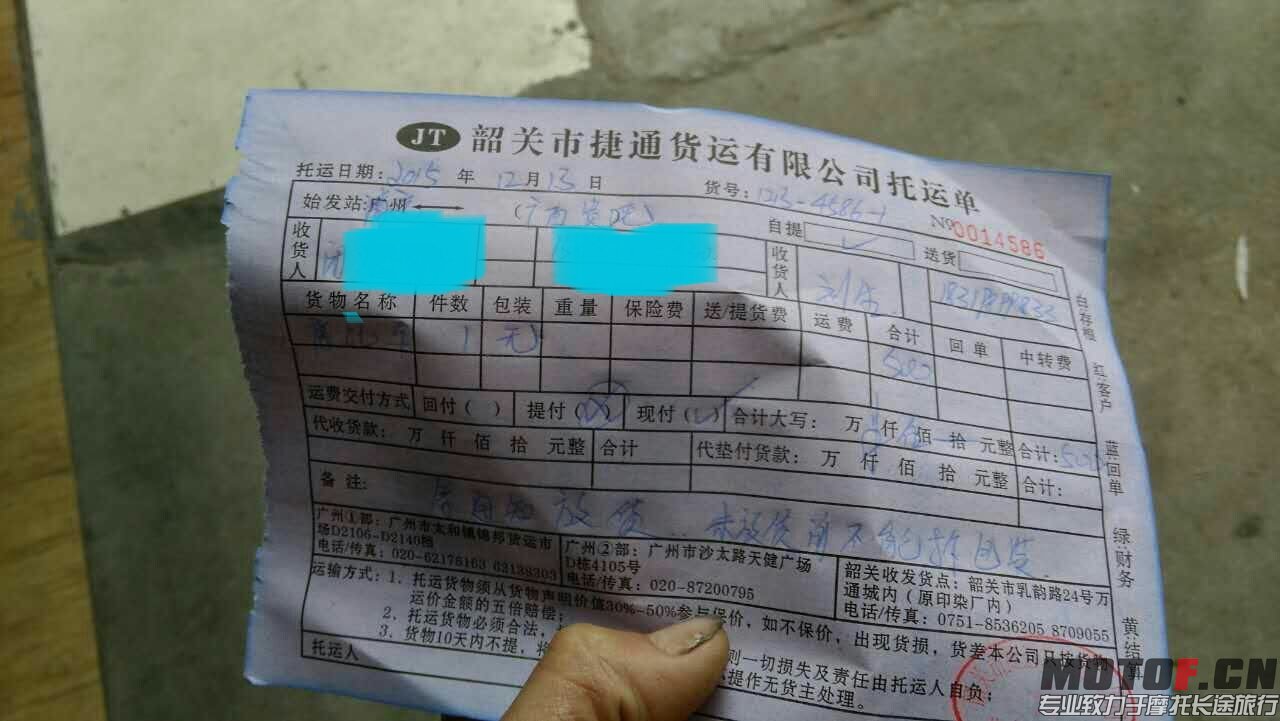 JT 韶关市捷通货运有限公司托运单
托运日期：2015 年 12 月 13 日 货号：1213-4586-1
始发站：广州 自提 送货 №0014586
收货人 收货人
货物名称 件数 包装 重量 保险费 送/提货费 运费 合计 回单 中转费
1 无 500
运费交付方式 回付（ ） 提付（ ） 现付（ ） 合计大写： 万 仟 伍 佰 拾 元整 合计：500
代收货款： 万 仟 佰 拾 元整 合计 代垫付货款： 万 仟 佰 拾 元整 合计：
备注： 放货 未放货前不能拆包装
广州①部：广州市太和镇锦邦货运市场D2106-D2140档
电话/传真：020-62175163 62138303
广州②部：广州市沙太路天健广场D栋4105号
电话/传真：020-87200795
韶关收发货点：韶关市乳韵路24号万通城内（原印染厂内）
电话/传真：0751-8536205 8709055
运输方式：1、托运货物须从货物声明价值30%-50%参与保价，如不保价，出现货损，货差本公司只按货物
运价金额的五倍赔偿；
2、托运货物必须合法， 则一切损失及责任由托运人自负；
3、货物10天内不提，将 操作无货主处理。
托运人
白:存根 红:客户 蓝:回单 绿:财务 黄:结算
MOTOF.CN
专业致力于摩托长途旅行